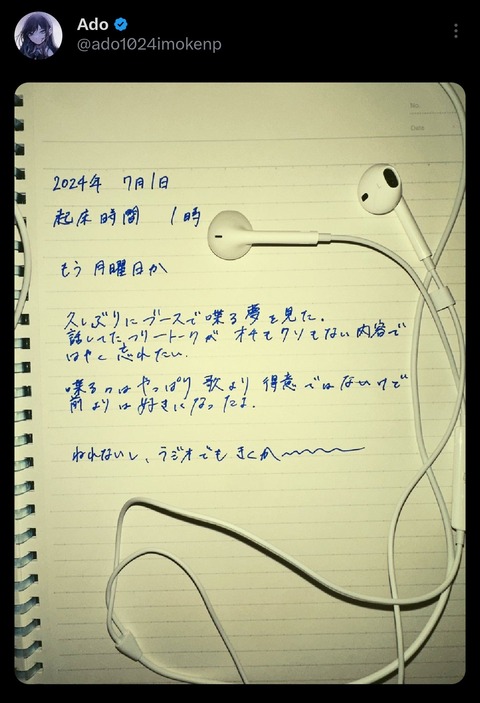 Ado
@ado1024imokenp
No.
Date
2024年 7月1日
起床時間 1時
もう 月曜日か
久しぶりにブースで喋る夢を見た。
話してたフリートークが オチもクソもない内容で
はやく忘れたい。
喋るのはやっぱり 歌より 得意ではないけど
前よりは好きになったよ。
ねれないし、ラジオでも きくか〜〜〜〜